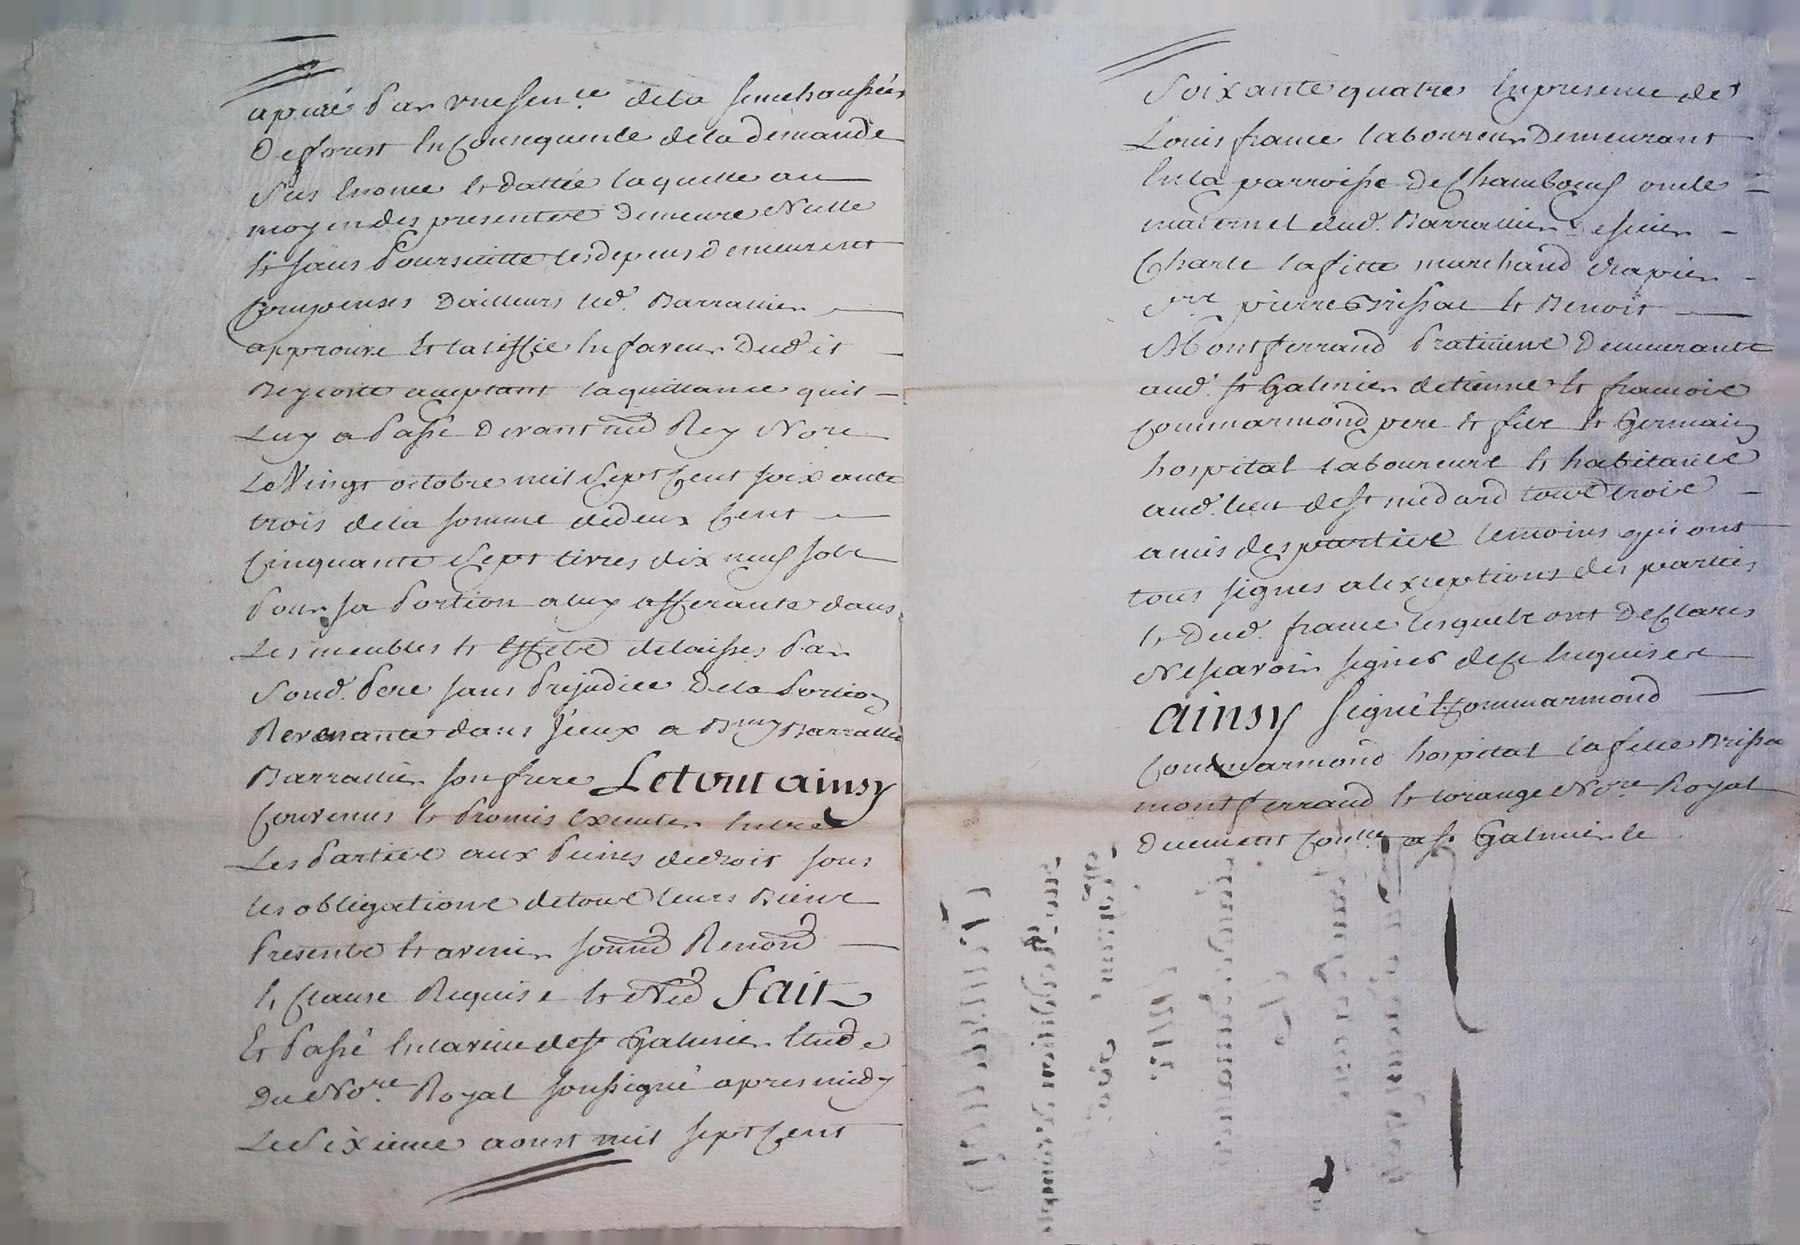 par une sen.ce de la senechaussée
De forest En Consequence de la demande
Sus Enoncé Et dattée laquelle au
moyen des presentes Demeure Nulle
Et sans Poursuitte les depens demeurent
Compenses Dailleurs led. Barrallier
approuve Et Ratiffie En faveur Dud it
acceptant la quittance quil
Luy a Passé Devant Rey Nore
Le Vingt octobre mil Sept Cent soixante
trois de la somme de deux Cent
Cinquante Sept livres dix neuf sols
Pour sa Portion a luy afferante dans
Les meubles Et Effets delaisses Par
Soud. Pere sans Prejudice De la Portion
Revenante dans Iceux a Barrallie
Barrallier son frere Le tout ainsy
Convenus Et Promis Executer Entre
Les Parties aux Peines de droit sous
les obligations de tous leurs Biens
Presents Et avenir
Et Clause Requise Et Fait
Et Passé En la ville de St Galmier Etude
Du No.re Royal soussigné apres midy
Le Sixieme aoust mil sept Cent
Soixante quatre En presence de
Louis france laboureur Demeurant
En la parroisse De Chambœuf oncle
maternel dud. Barrallier
Charle lafitte marchand drapier
pierre Brissat Et Benoit
Montferrand Praticiens Demeurants
aud. St Galmier detienne Et francois
Commarmond pere Et fils Et Germain
hospital laboureurs Et habitants
aud. lieu de St medard tous trois
amis des parties temoins qui ont
tous signes a lexceptions des parties
Et Dud. france lesquels ont Declares
Ne scavoir signer de Ce Enquis
ainsy signé Commarmond
Commarmond hospital lafitte Brissa
montferrand Et No.re Royal
Duement a St Galmier le